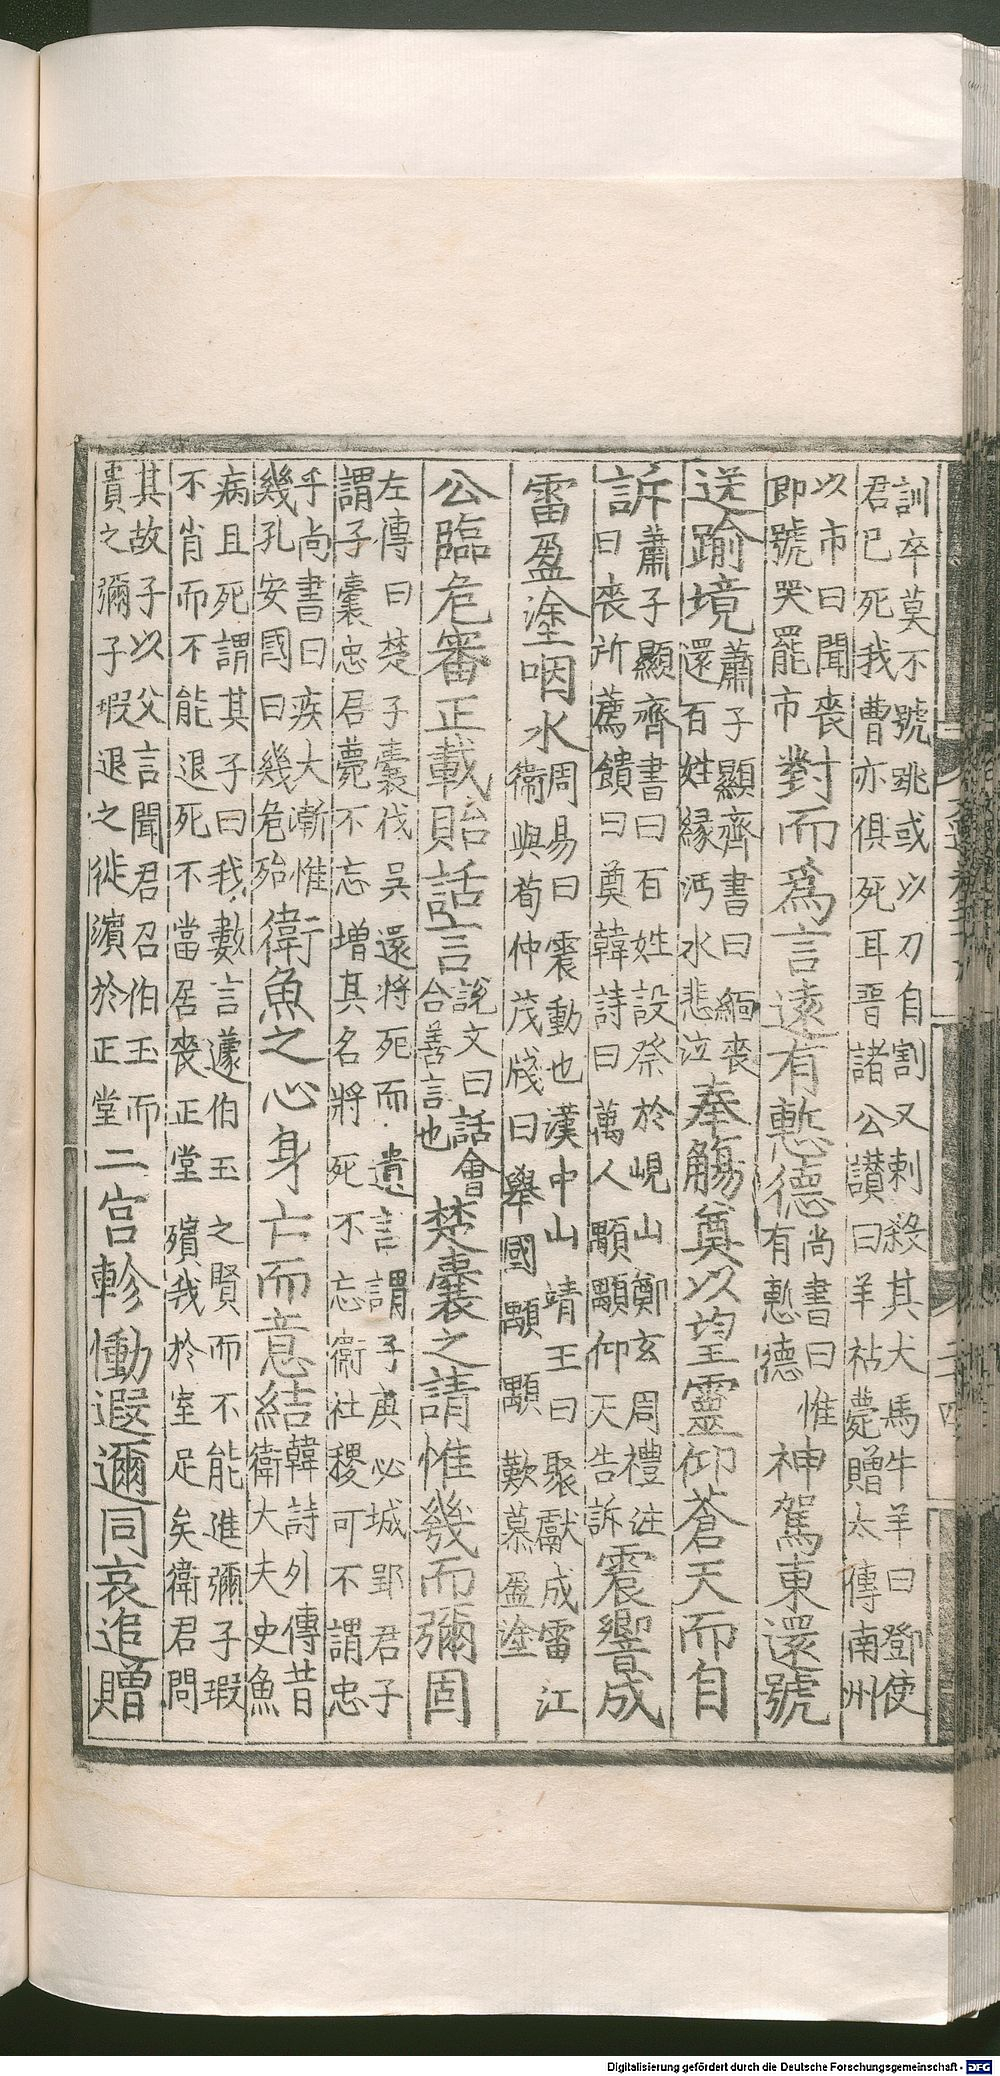 訓卒莫不號咷或以刀自割又刺殺其犬馬牛羊曰鄧使
君已死我曹亦俱死耳晋諸公讃曰羊祜薨贈太傅南州
以市曰聞喪
即號哭罷市
對而爲言遠有慙德
尚書曰惟
有慙德
神駕東還號
送踰境
蕭子顯齊書曰緬喪
還百姓緣沔水悲泣
奉觴奠以望靈仰蒼天而自
訴
蕭子顯齊書曰百姓設祭於峴山鄭玄周禮注
曰喪所薦饋曰奠韓詩曰萬人顒顒仰天告訴
震響成
雷盈塗咽水
周易曰震動也漢中山靖王曰聚獻成雷江
衞與荀仲茂牋曰舉國顒顒歎慕盈塗
公臨危審正載貽話言
說文曰話會
合善言也
楚囊之請惟幾而彌固
左傳曰楚子囊伐吳還將死而遺言謂子庚必城郢君子
謂子囊忠君薨不忘增其名將死不忘衞社稷可不謂忠
乎尚書曰疾大漸惟
幾孔安國曰幾危殆
衛魚之心身亡而意結
韓詩外傳昔
衛大夫史魚
病且死謂其子曰我數言蘧伯玉之賢而不能進彌子瑕
不肖而不能退死不當居喪正堂殯我於室足矣衛君問
其故子以父言聞君召伯玉而
貴之彌子瑕退之徙濵於正堂
二宫軫慟遐邇同哀追贈
Digitalisierung gefördert durch die Deutsche Forschungsgemeinschaft - DFG